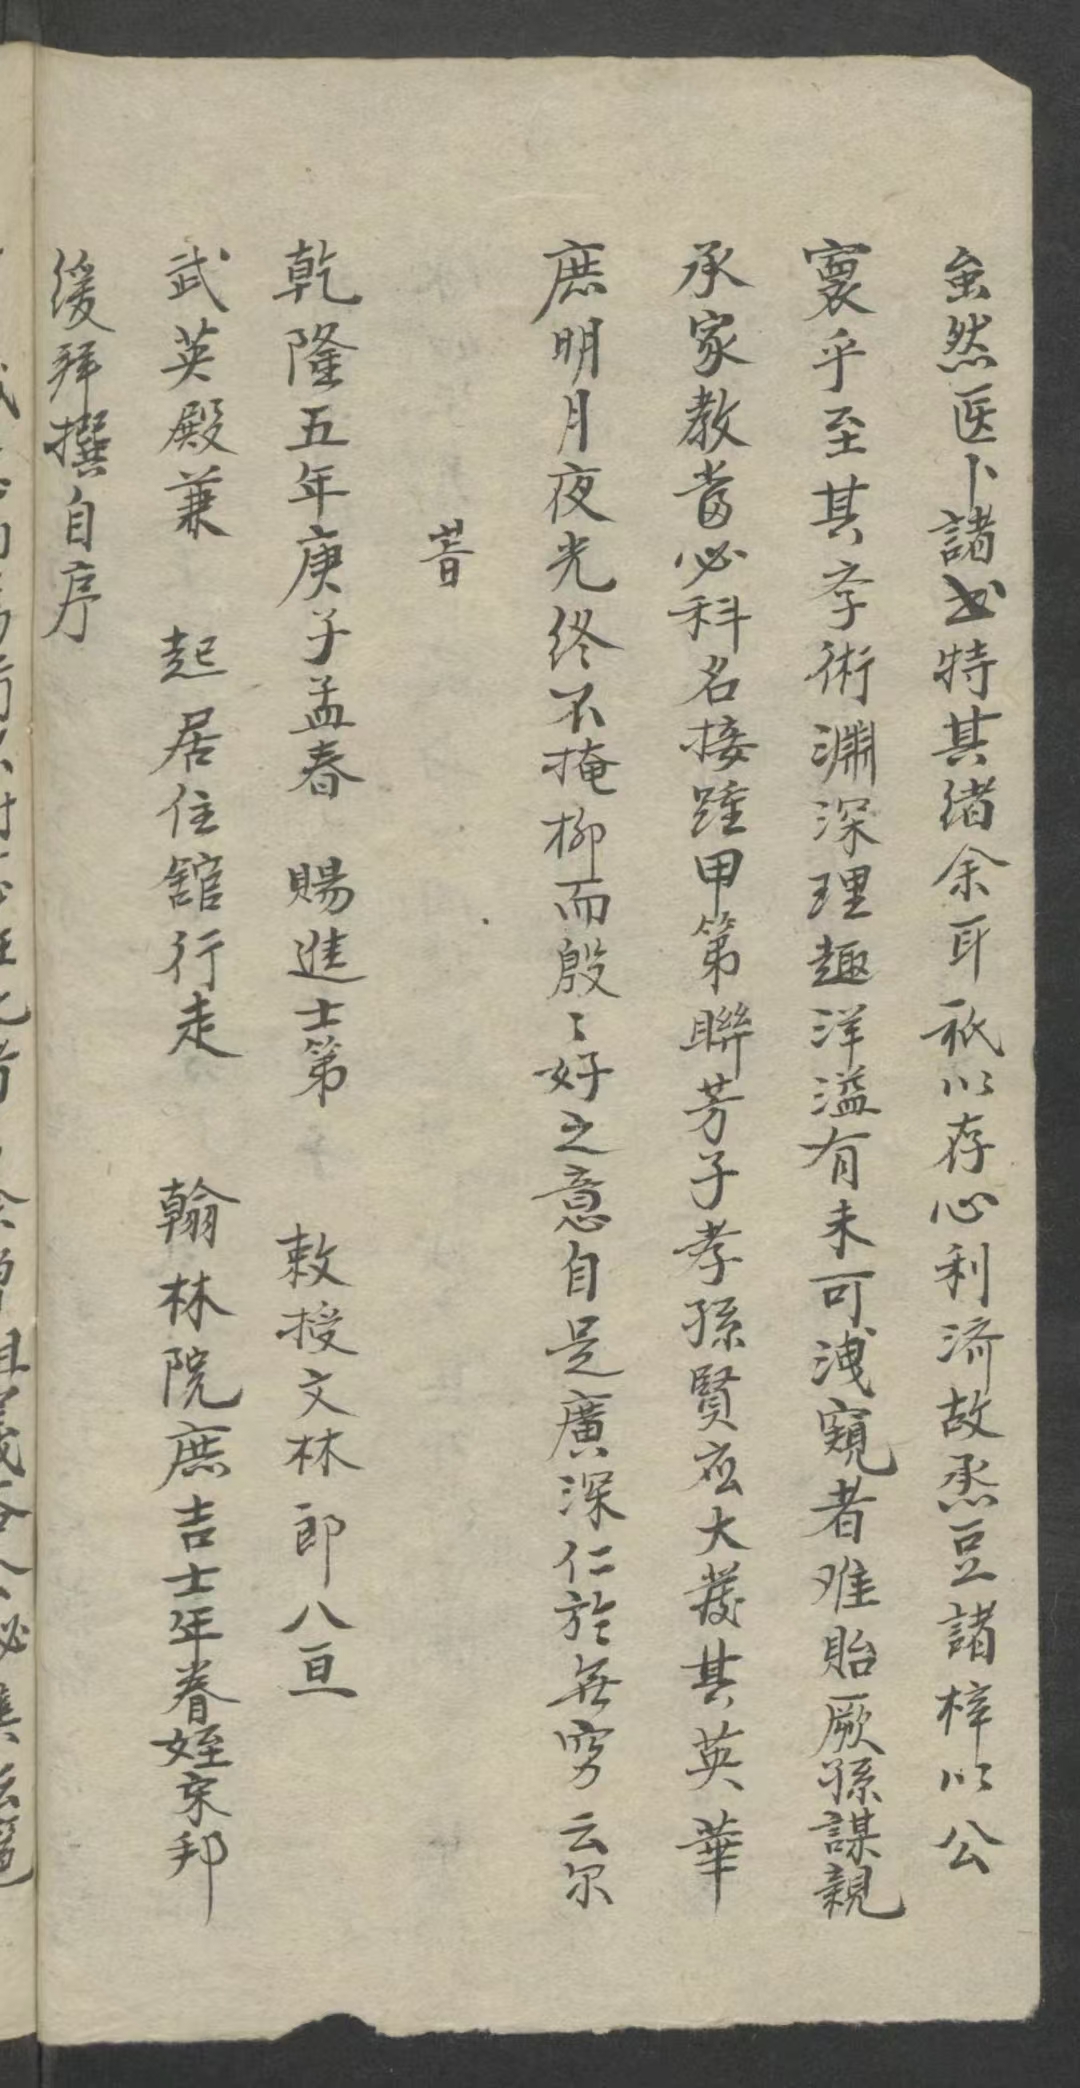 虽然医卜諸书特其绪余耳祇以存心利济故悉豆諸梓以公
寰乎至其孝術渊深理趣洋溢有未可洩窺者难貽厥孫謀親
承家教當必科名接踵甲第聨芳子孝孫賢应大发其英華
庶明月夜光终不掩柳而殷〻好之意自是廣深仁於無穷云尔
旹
乾隆五年庚子孟春 賜進士第 敕授文林郎八亘
武英殿兼 起居住舘行走 翰林院庶吉士年眷姪宋邦
缓拜撰自序